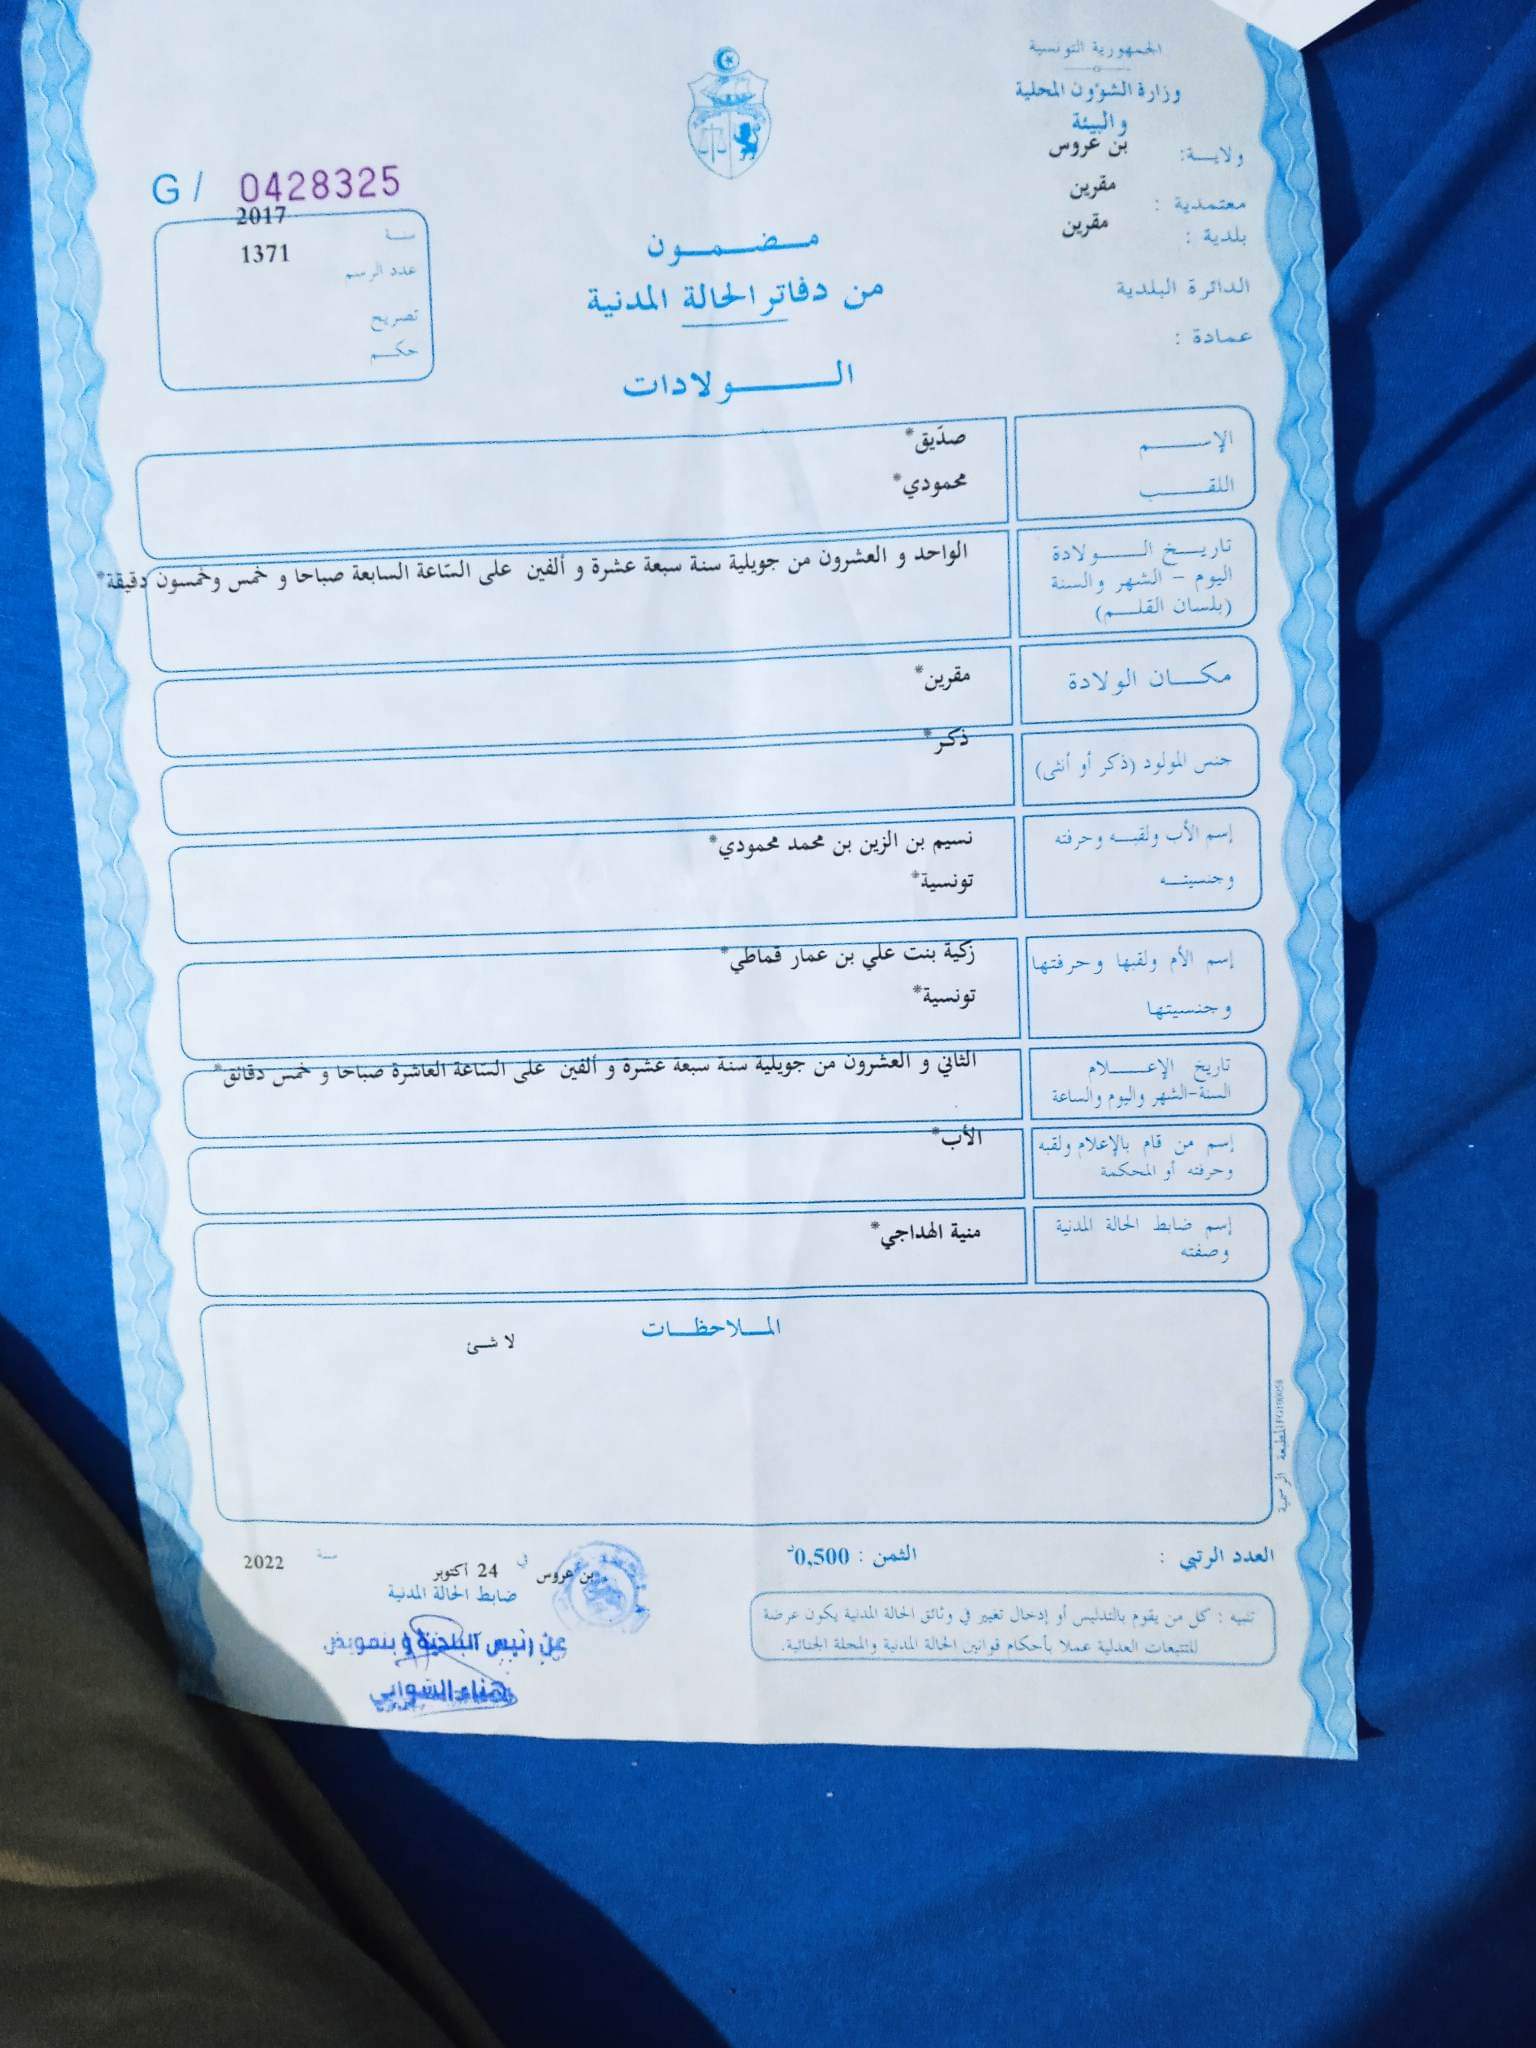 الجمهورية التونسية
وزارة الشؤون المحلية
والبيئة
ولايـة: بن عروس
معتمدية : مقرين
بلدية : مقرين
الدائرة البلدية
عمادة :
G / 0428325
سنـة 2017
عدد الرسم 1371
تصريح
حكـم
مـضـمـون
من دفاتر الحالة المدنية
الـولادات
الإسـم صدّيق*
اللقـب محمودي*
تاريـخ الـولادة
اليوم - الشهر والسنة
(بلسان القلـم)
الواحد و العشرون من جويلية سنة سبعة عشرة و ألفين على السّاعة السابعة صباحا و خمس وخمسون دقيقة*
مكـان الولادة مقرين*
جنس المولود (ذكر أو أنثى) ذكر*
إسم الأب ولقبـه وحرفته نسيم بن الزين بن محمد محمودي*
وجنسيتـه تونسية*
إسم الأم ولقبها وحرفتها زكية بنت علي بن عمار قماطي*
وجنسيتها تونسية*
تاريخ الإعـلام
السنة-الشهر واليوم والساعة
الثاني و العشرون من جويلية سنة سبعة عشرة و ألفين على السّاعة العاشرة صباحا و خمس دقائق*
إسم من قام بالإعلام ولقبه
وحرفته أو المحكمة
الأب*
إسم ضابط الحالة المدنية
وصفته
منية الهداجي*
المـلاحظـات
لا شئ
المطبعة الرسمية
العدد الرتبي :
الثمن : 0,500د
بن عروس في 24 أكتوبر سنة 2022
ضابط الحالة المدنية
عن رئيس البلدية وبتفويض
هناء الشوابي
تنبيه : كل من يقوم بالتدليس أو إدخال تغيير في وثائق الحالة المدنية يكون عرضة
للتتبعات العدلية عملا بأحكام قوانين الحالة المدنية والمجلة الجنائية.